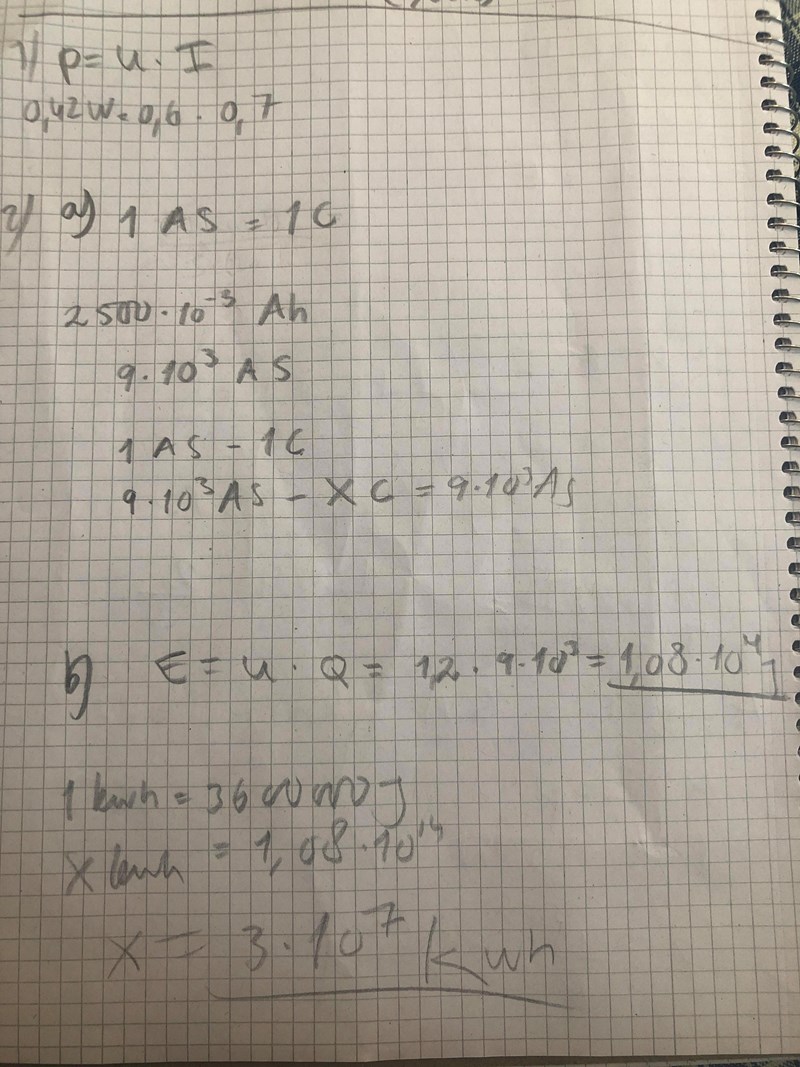 1) P = U · I
0,42W = 0,6 · 0,7
2) a) 1 AS = 1C
2500 · 10⁻³ Ah
9 · 10³ AS
1 AS - 1C
9 · 10³ AS - X C = 9 · 10³ As
b) E = U · Q = 1,2 · 9 · 10³ = 1,08 · 10⁴ J
1 kwh = 3600000 J
X kwh = 1,08 · 10¹⁴
X = 3 · 10⁷ kwh